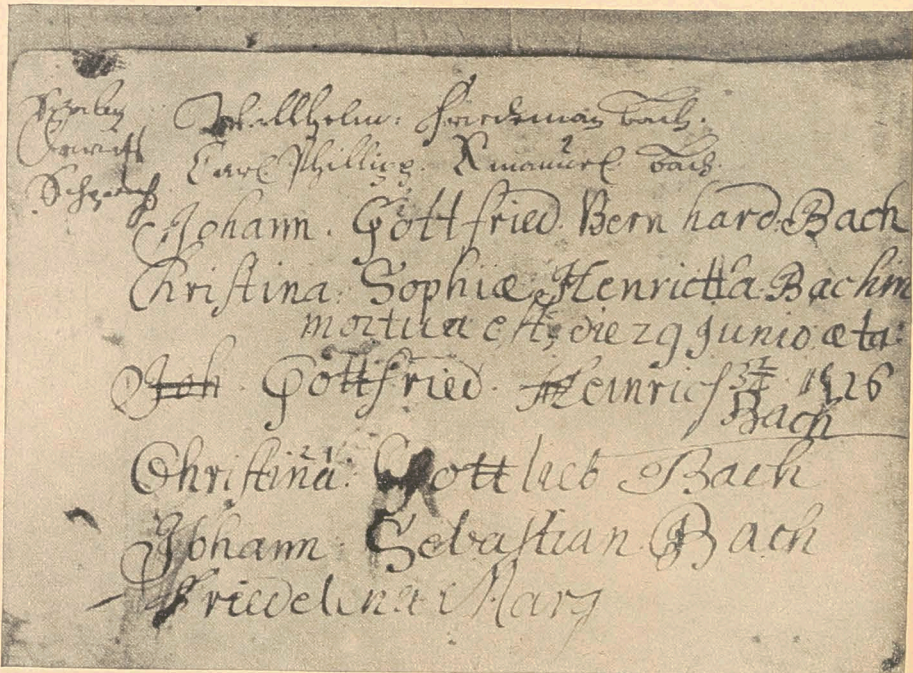 Willhelm: Friedeman Bach.
Carl Phillipp Emanuel Bach.
Johann. Gottfried. Bernhard. Bach
Christina. Sophiæ. Henrietta. Bachin
mortua est, die 29 Junio æta:
Joh. Gottfried. Heinrich
1726
Bach
Christina. Gottlieb Bach
Johann. Sebastian. Bach
Friedelena Marg